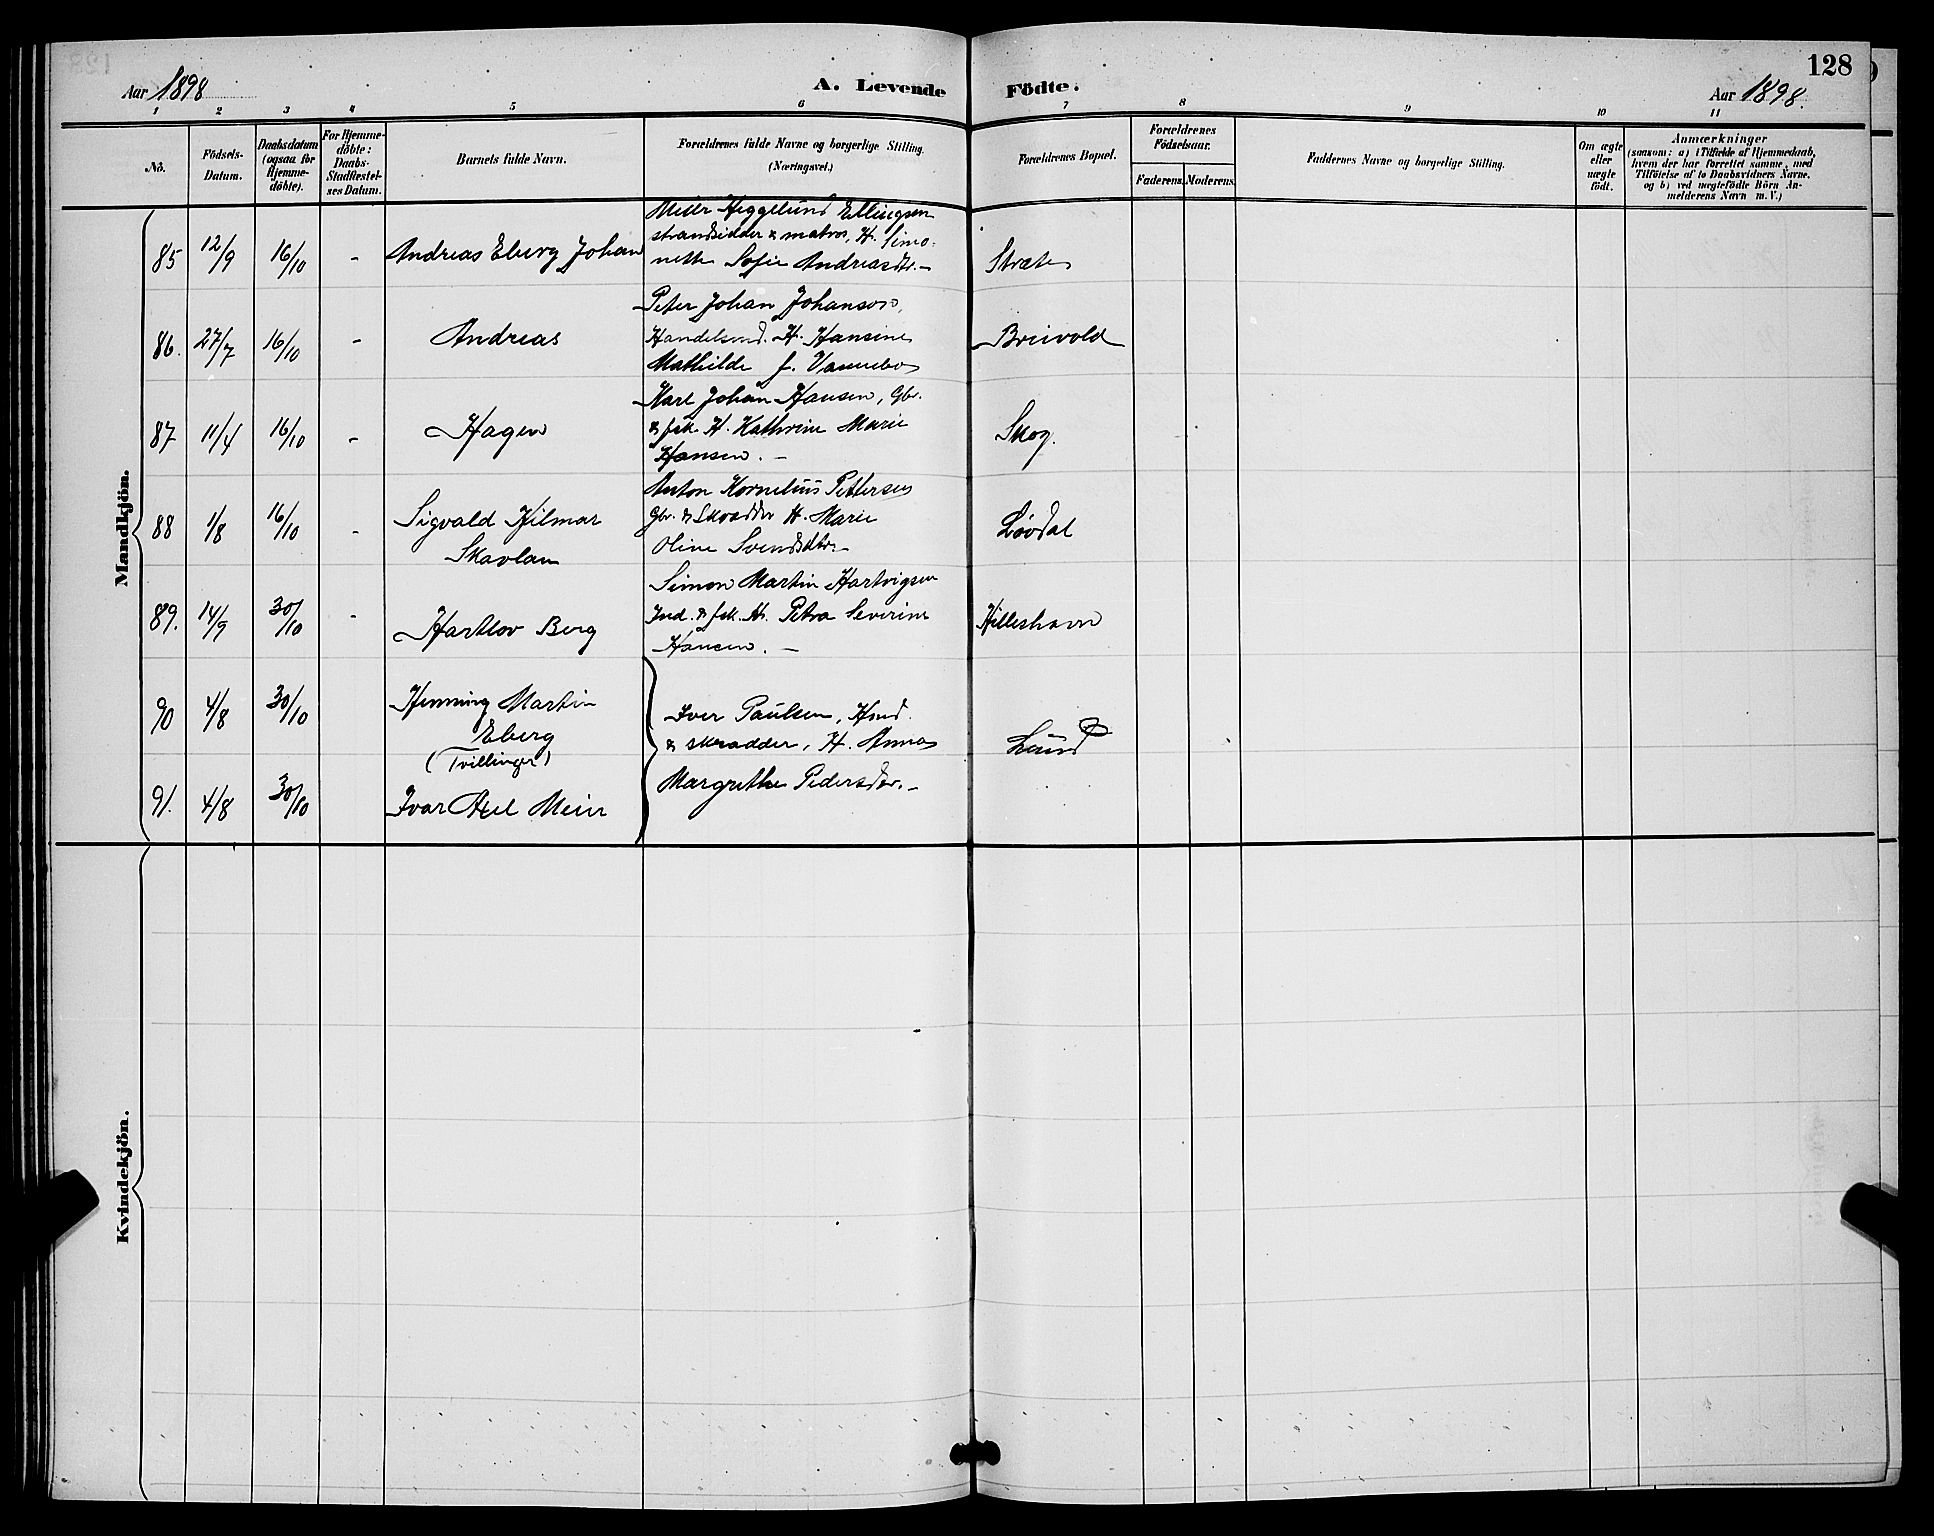 128
Aar 1898
A. Levende Födte.
Aar 1898.
1 2 3 4 5 6 7 8 9 10 11
Nô.
Födsels-
Datum.
Daabsdatum
(ogsaa for
Hjemme-
döbte).
For Hjemme-
döbte:
Daabs-
Stadfæstel-
ses Datum.
Barnets fulde Navn.
Forældrenes fulde Navne og borgerlige Stilling.
(Næringsvei.)
Forældrenes Bopæl.
Forældrenes
Födselsaar.
Faderens. Moderens.
Faddernes Navne og borgerlige Stilling.
Om ægte
eller
uægte
födt.
Anmærkninger
(saasom: a) i Tilfælde af Hjemmedaab,
hvem der har forrettet samme, med
Tilföielse af to Daabsvidners Navne,
og b) ved uægtefödte Börn An-
melderens Navn m. V.)
Mandkjön.
85 12/9 16/10 - Andreas Eberg Johan
Heggelund Ellingsen
strandsidder & matros, H. Simo-
nette Sofie Andreasdtr. -
Stræte
86. 27/7 16/10 - Andreas
Peter Johan Johanson,
Handelsmd. H. Hansine
Mathilde f. Vannebo
Breivold
87 11/4 16/10 - Hagen
Karl Johan Hansen, Gbr.
& fsk. H. Kathrine Marie
Hansen. -
Skog.
88 1/8 16/10 - Sigvald Hilmar
Skavlan
Anton Kornelius Pettersen
Gbr. & Skrædder H. Marie
Oline Svendsdtr. -
Løvdal
89. 14/9 30/10 - Hartlov Berg
Simon Martin Hartvigsen
Ind. & fsk. H. Petra Severine
Hansen. -
Killeshavn
90 4/8 30/10 Henning Martin
Eberg
(Tvillinger)
91. 4/8 30/10 Ivar Axel Meier
Iver Paulsen, Hmd.
& skrædder, H. Anna
Margrethe Pedersdtr. -
Lund
Kvindekjön.